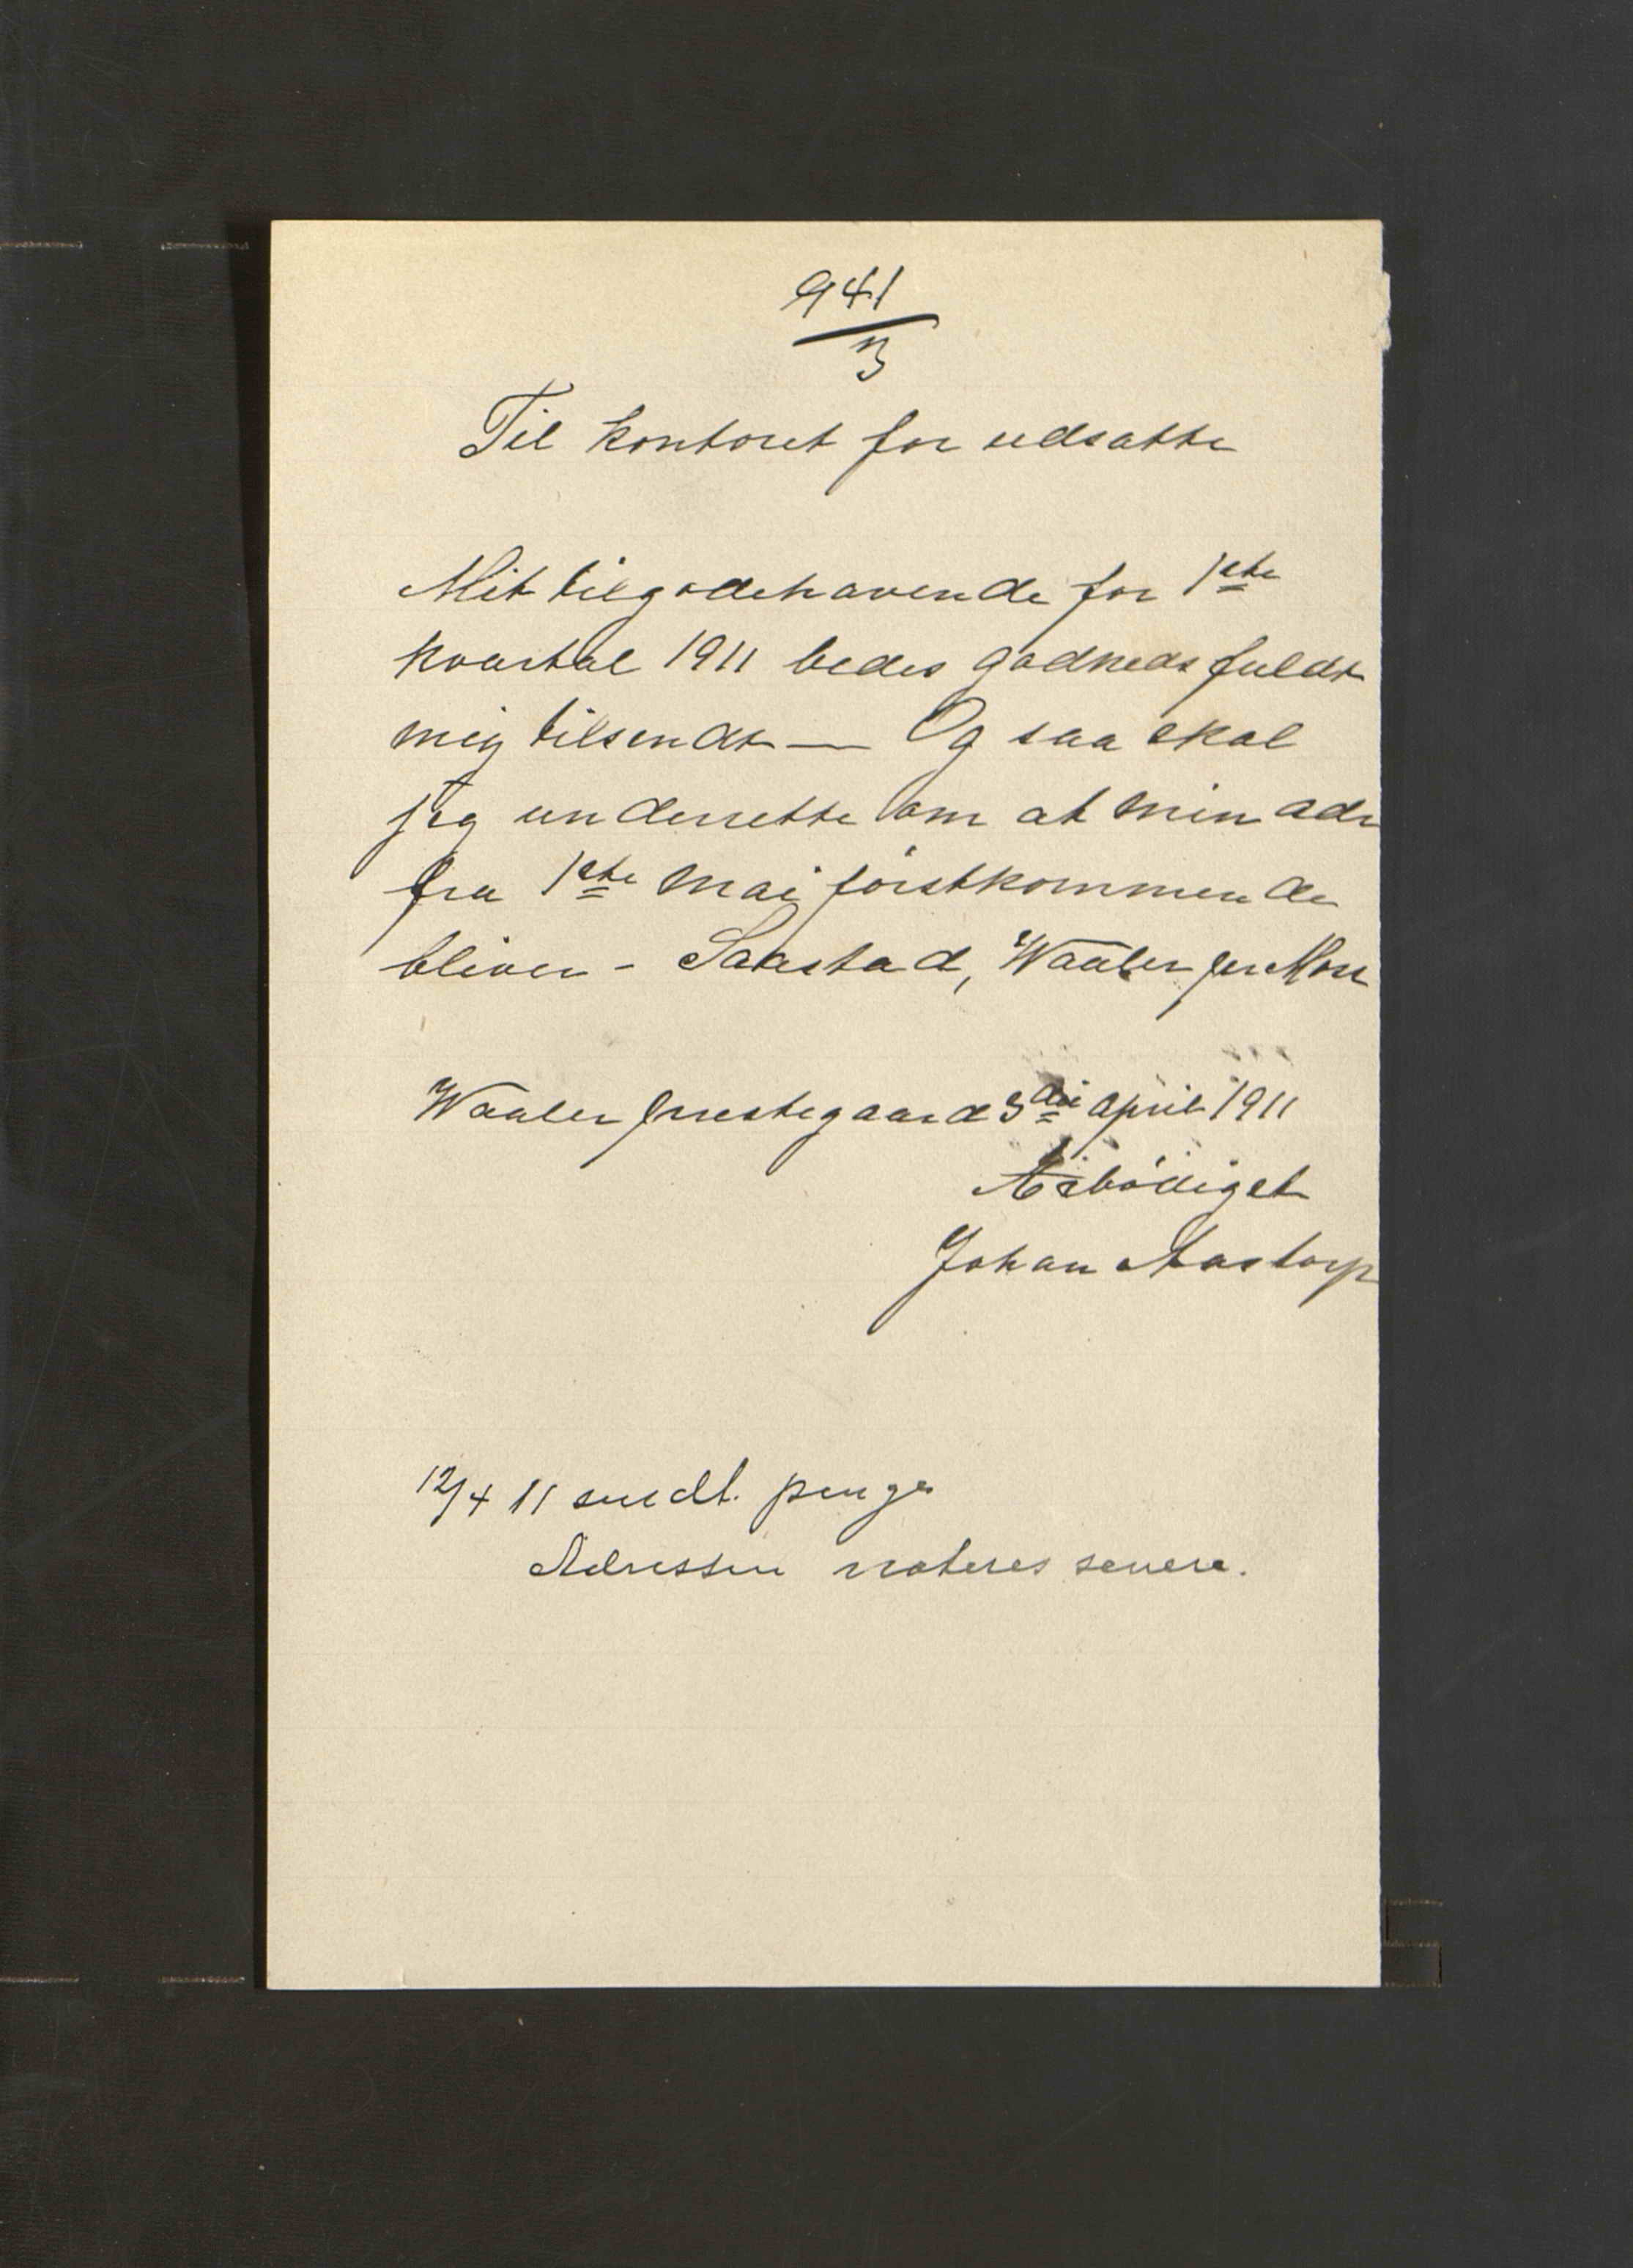 941
3
Til kontoret for udsatte
Mit tilgodehavende for 1ste
kvartal 1911 bedes godhedsfuldt
mig tilsendt — Og saa skal
jeg underrette om at min adr
fra 1ste mai förstkommende
bliver - Saastad, Waaler per Moss
Waaler prestegaard 3die april 1911
Ærbödigst
Johan Aastorp
12/4 11 sendt. penge
Adressen noteres senere.